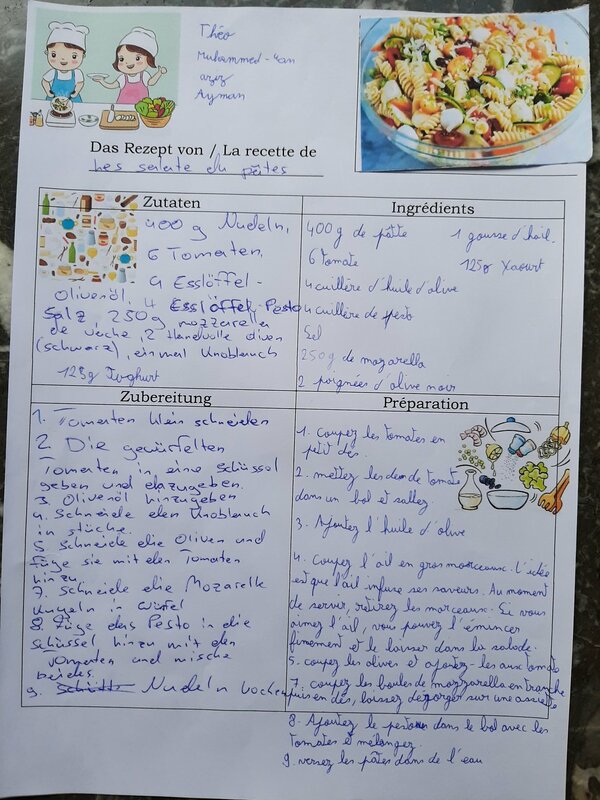 Théo
Muhammed-Han
aziz
Ayman
Das Rezept von / La recette de
Les salate du pâtes
Zutaten
400 g Nudeln,
6 Tomaten,
4 Esslöffel-
Olivenöl, 4 Esslöffel-Pesto
Salz 250g mozzarella
de vache, 2 Handvolle oliven
(schwarz), einmal Knoblauch
125g Joghurt
Ingrédients
400g de pâte
1 gousse d'hail.
6 tomate
125g Yaourt
4 cuillère d'huile d'olive
4 cuillère de pesto
Sel
250g de mozarella
2 poignées d'olive noir
Zubereitung
1. Tomaten klein schneiden
2 Die gewürfelten
Tomaten in eine Schüssel
geben und dazugeben.
3. Olivenöl hinzugeben
4. Schneide den Knoblauch
in stücke.
5 Schneide die Oliven und
füge sie mit den Tomaten
hinzu
7. Schneide die Mozarella
kugeln in würfel
8. Füge das Pesto in die
schüssel hinzu mit den
Tomaten und mische
beides
9. Nudeln kochen
Préparation
1. coupez les tomates en
petit dés.
2. mettez les des de tomate
dans un bol et sallez
3. Ajoutez l'huile d'olive
4. Coupez l'ail en gros morceaux. L'idée
est que l'ail infuse ses saveurs. Au moment
de server, retirez les morceaux. Si vous
aimez l'ail, vous pouvez l'émincer
finement et le laisser dans la salade.
5. coupez les olives et ajoutez-les aux tomato
7. coupez les boules de mozzarella en tranche
puis en dés, laissez degorger sur une assiette
8. Ajoutez le pesto dans le bol avec les
tomates et melangez.
9. versez les pâtes dans de l'eau